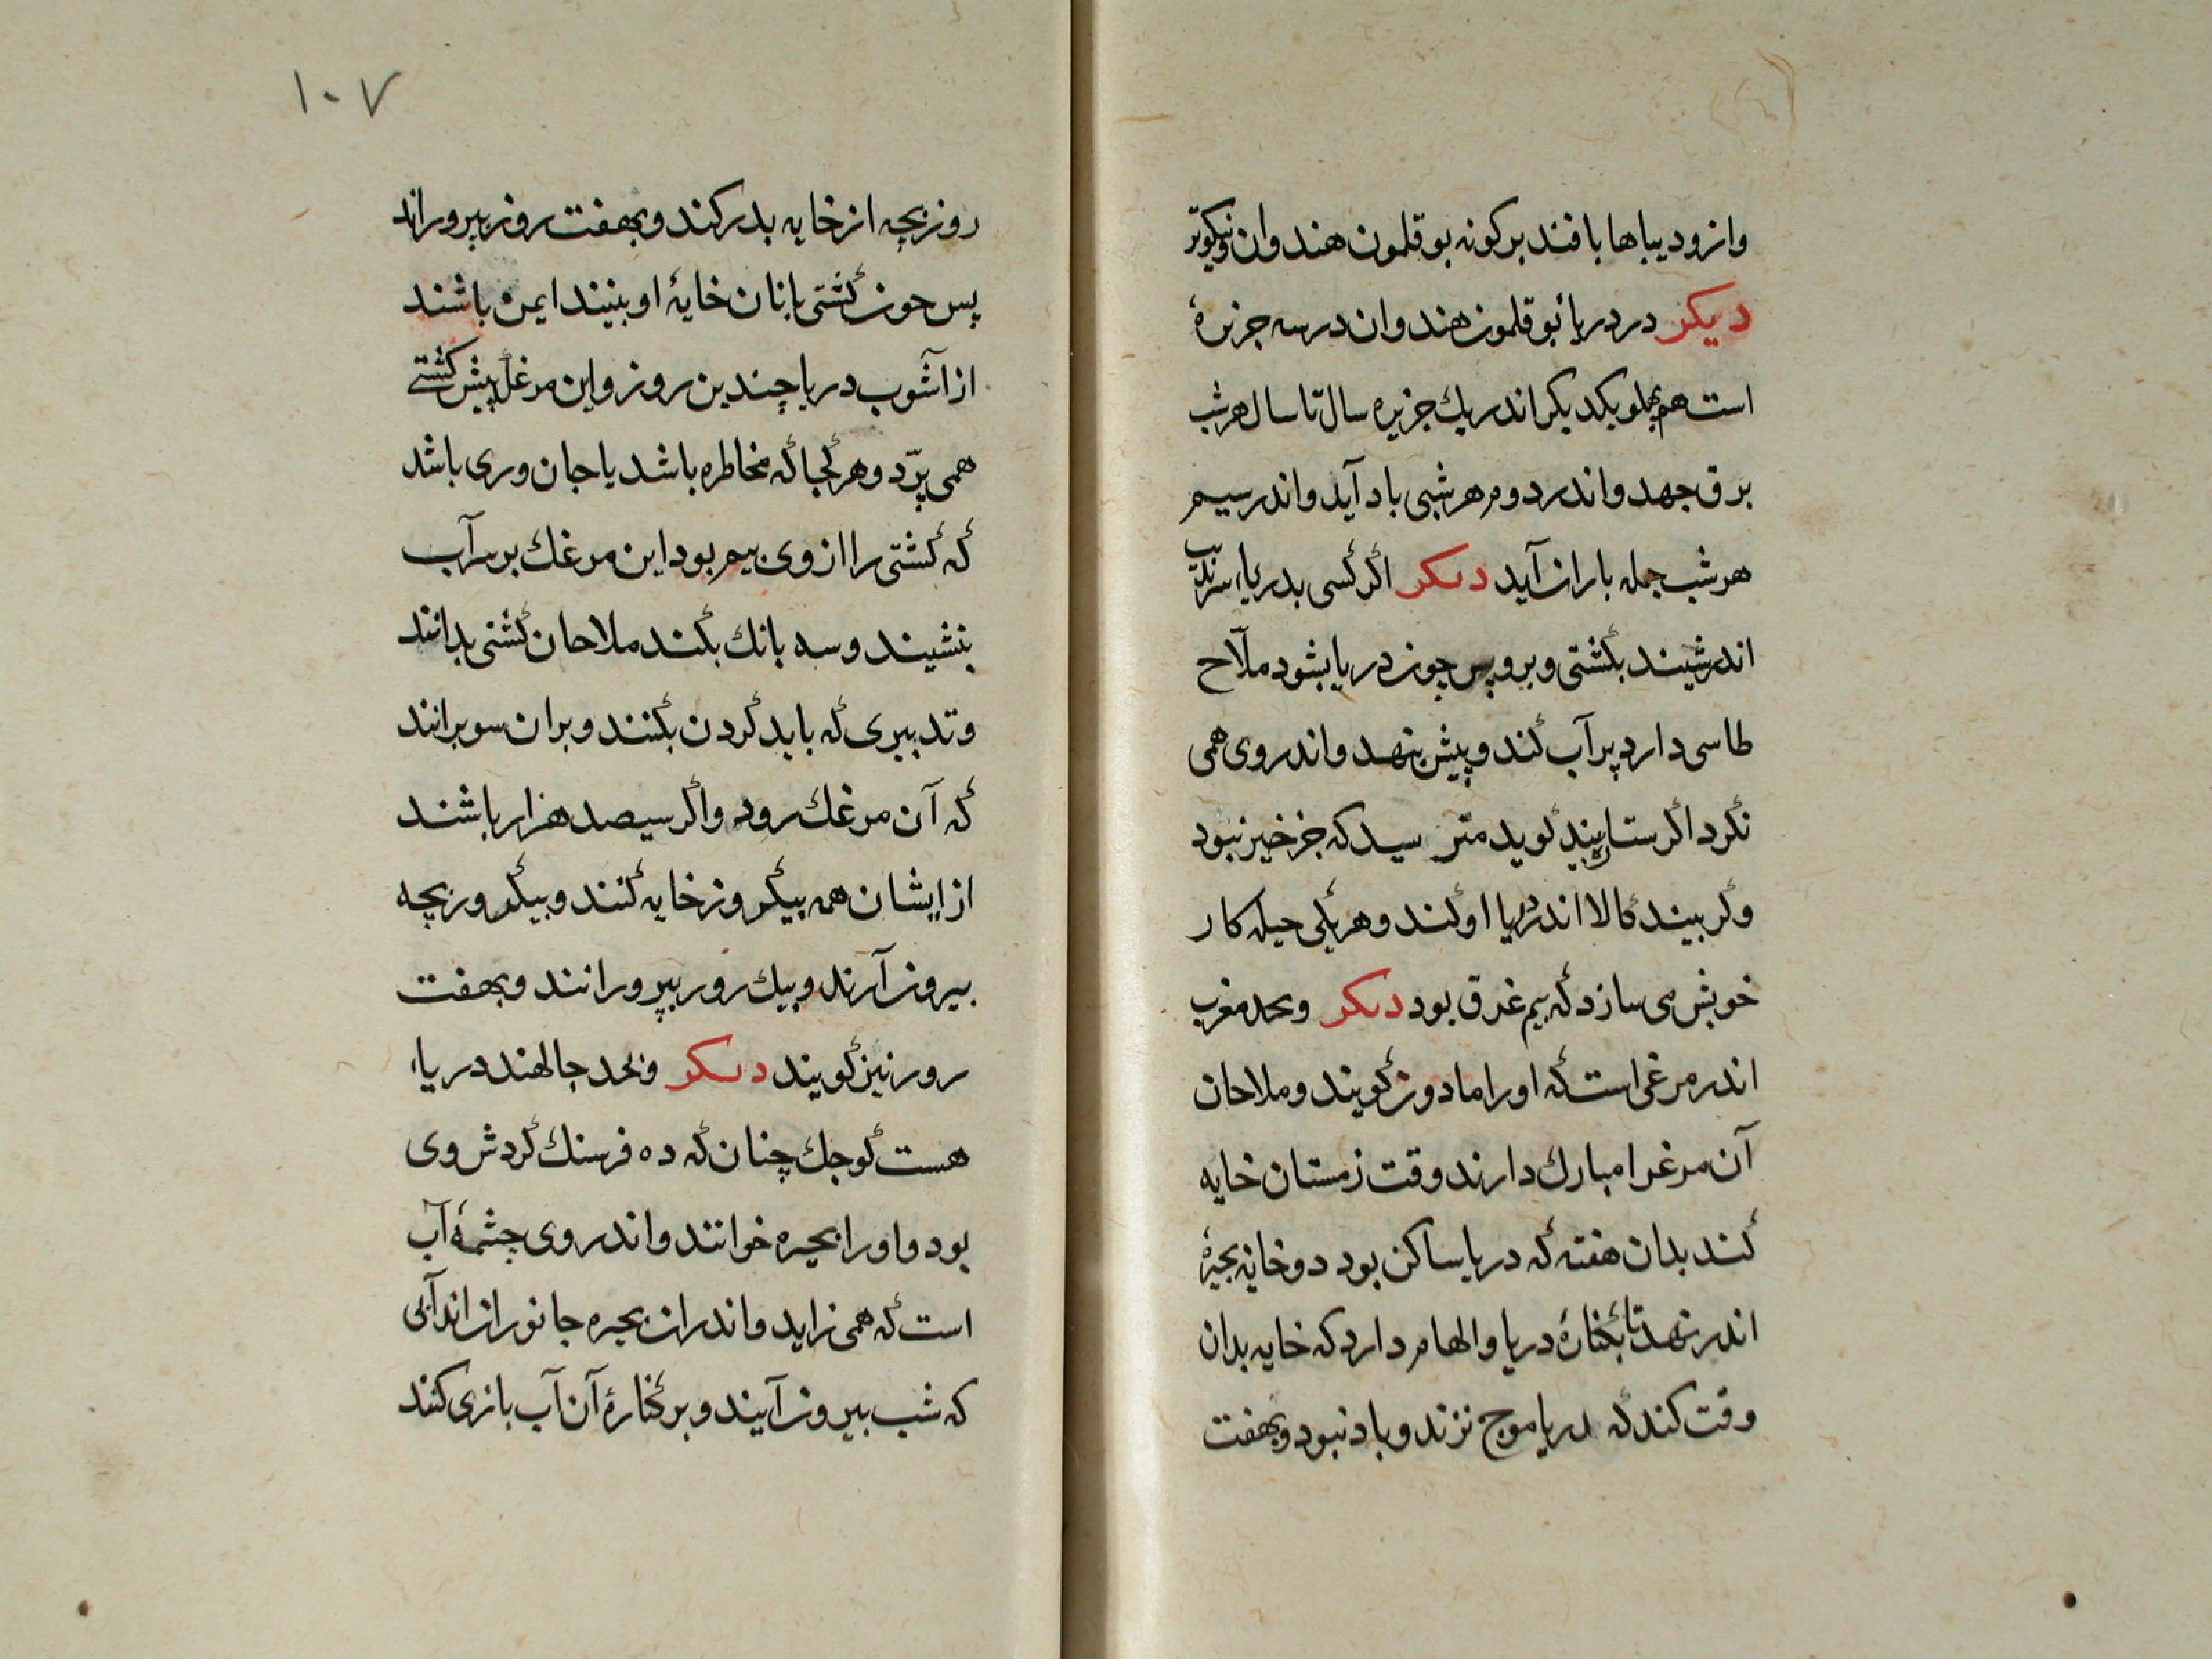 وازو دیباها بافند برکونه بوقلمون هند وان نیکوتر
دیکر در دریا بوقلمون هند وان در سه جزیرهٔ
است هم بهلو یکدیکر اندر یك جزیره سال تا سال هر شب
برق جهد واندر دوم هر شبی باد آید واندر سیم
هر شب جمله باران آید دیکر اکر کسی بدریاء سرندیب
اندر نشیند بکشتی وبرو پس چون دریا بشود ملّاح
طاسی دارد پر آب کند وپیش بنهد واندر وی همی
نکرد اکر ستاره بیند کوید مترسید که جز خیر نبود
وکر بیند کالا اندر دریا او کند وهر یکی حیله کار
خویش می سازد که بیم غرق بود دیکر وبحد مغرب
اندر مرغی است که اورا مادون کویند وملاحان
آن مرغرا مبارك دارند وقت زمستان خایه
کند بدان هفته که دریا ساکن بود دوخایه بجیرهٔ
اندر نهد تا بکنارهٔ دریا والهام دارد که خایه بدان
وقت کند که دریا موج نزند وباد نبود وبهفت
۱۰۷
روز بچه از خایه بدر کند وبهفت روز بپروراند
پس چون کشتی بانان خایهٔ او بینند ایمن باشند
از آشوب دریا چندین روز واین مرغك پیش کشتی
همی پرّد وهر کجا که مخاطره باشد یا جان وری باشد
که کشتی را از وی بیم بود این مرغك بر سر آب
بنشیند وسه بانك بکند ملاحان کشتی بدانند
وتدبیری که باید کردن بکنند وبران سو برانند
که آن مرغك رود واکر سیصد هزار باشند
از ایشان همه بیکروز خایه کنند وبیکروز بچه
بیرون آرند وبیك روز بپرورانند وبهفت
روز نیز کویند دیکر وبحد جالهند دریاء
هست کوجك چنان که ده فرسنك کردش وی
بود واورا بحیره خوانند واندر وی چشمهٔ آب
است که همی زاید واندران بحیره جانوران اند آبی
که شب بیرون آیند وبر کنارهٔ آن آب بازی کنند